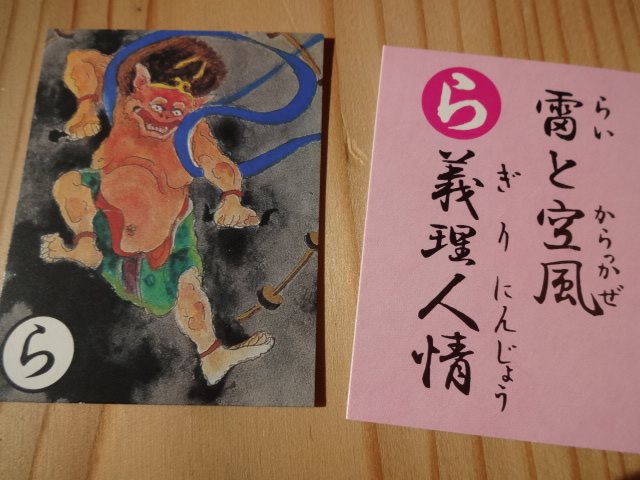 ら
ら
雷と空風
らい
からっかぜ
義理人情
ぎりにんじょう